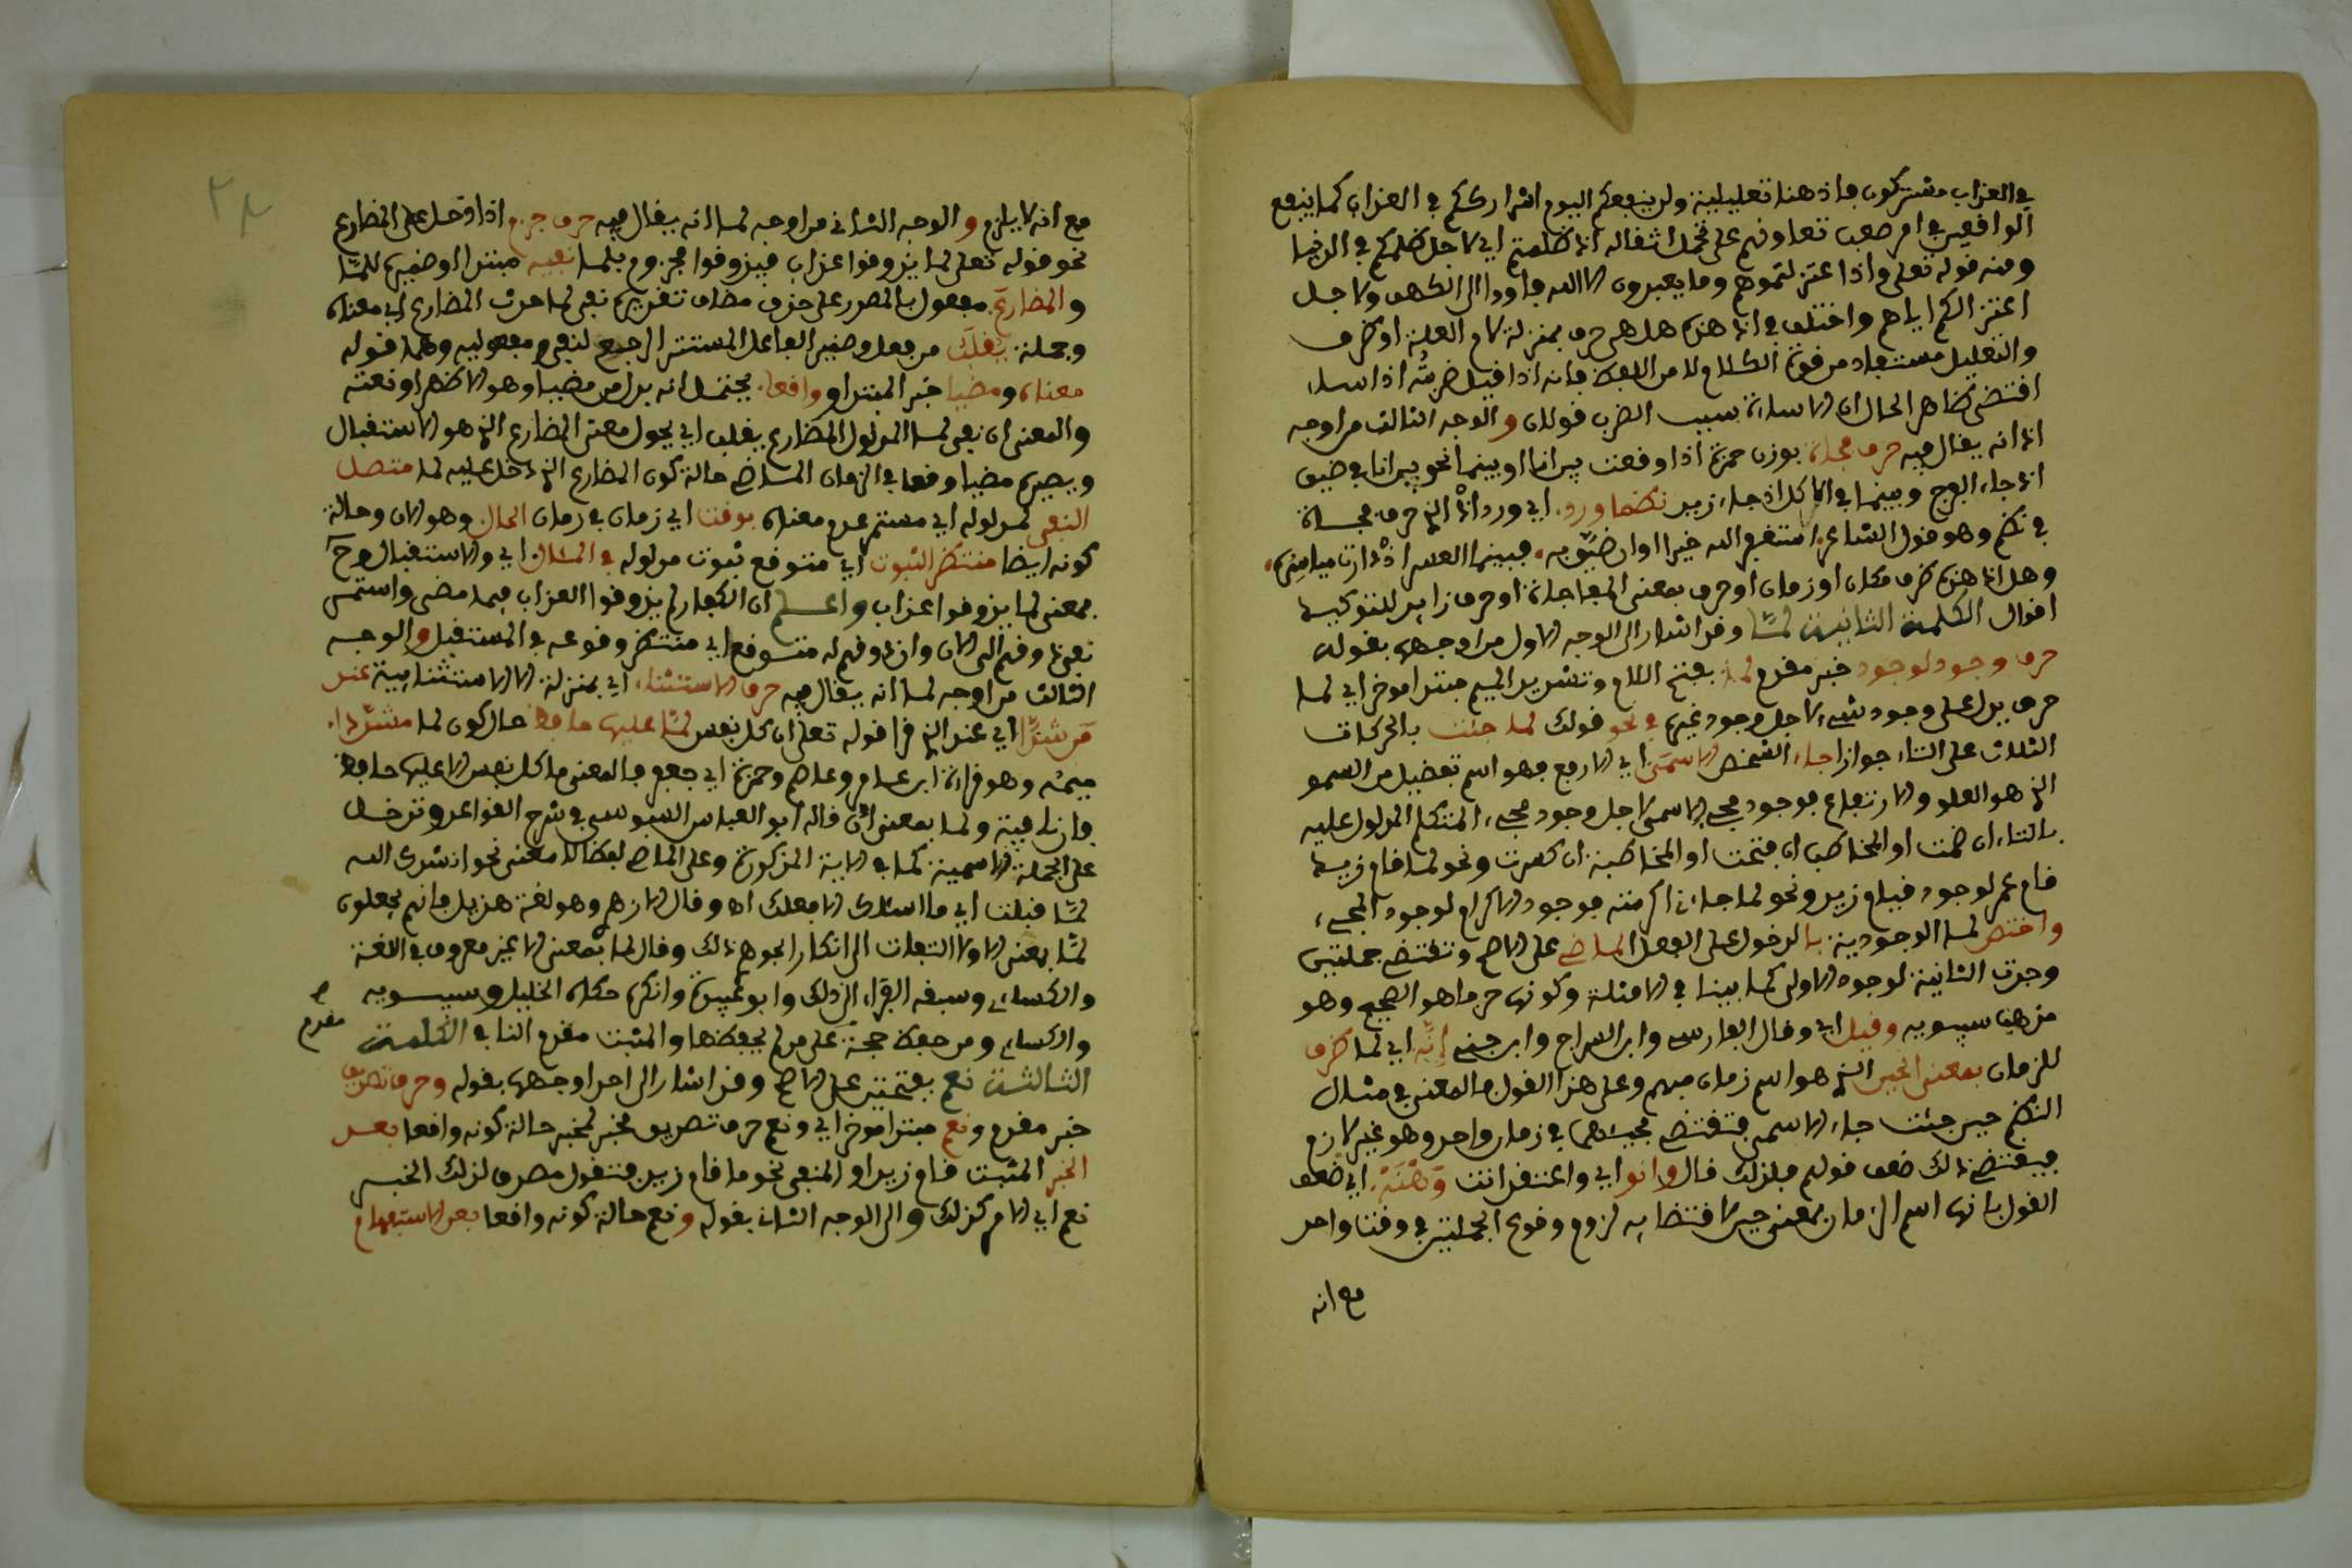 في العذاب مشتركون فاذ هنا تعليلية ولن ينفعكم اليوم اشتراككم في العذاب كما ينفع
الواقعين في امر صعب تعاونهم على تحمل اثقاله اذ ظلمتم اي لاجل ظلمكم في الدنيا
ومنه قوله تعلى واذ اعتزلتموهم وما يعبدون الا الله فاووا الى الكهف ولاجل
اعتزالكم اياهم واختلف في اذ هذه هل هي حرف بمنزلة لام العلة او ظرف
والتعليل مستفاد من قوة الكلام لا من اللفظ فانه اذا قيل ضربته اذ اساء
اقتضى ظاهر الحال ان الاساءة سبب الضرب قولان والوجه الثالث من اوجه
اذ انه يقال فيه حرف مفاجاة بوزن حمزة اذا وقعت بين او بينما نحو بين انا في ضيق
اذ جاء الفرج وبينما في الاكل اذ جاء زيد نظما ورد اي ورد اذ الذي حرف مفاجاة
في نظم وهو قول الشاعر استقدر الله خيرا وارضين به فبينما العسر اذ دارت مياسير
وهل اذ هذه ظرف مكان او زمان او حرف بمعنى المفاجاة او حرف زايد للتوكيد
اقوال الكلمة الثانية لما وقد اشار الى الوجه الاول من اوجهها بقوله
حرف وجود لوجود خبر مقدم لما بفتح اللام وتشديد الميم مبتدا موخر اي لما
حرف يدل على وجود شيء لاجل وجود غيره في نحو قولك لما جئت بالحركات
الثلاث على التاء جوازا جاء الشخص الاسمى اي الارفع فهو اسم تفضيل من السمو
الذي هو العلو والارتفاع فوجود مجيء الاسمى لاجل وجود مجيء المتكلم المدلول عليه
بالتاء ان ضمت او المخاطب ان فتحت او المخاطبة ان كسرت ونحو لما قام زيد
قام عمر لوجود قيام زيد ونحو لما جاءني اكرمته فوجود الاكرام لوجود المجيء
واختص لما الوجودية بالدخول على الفعل الماضي على الاصح وتقتضي جملتين
وجدت الثانية لوجود الاولى كما بينا في الامثلة وكونها حرفا هو الصحيح وهو
مذهب سيبويه وقيل اي وقال الفارسي وابن السراج وابن جني انه اي لما ظرف
للزمان بمعنى الحين الذي هو اسم زمان مبهم وعلى هذا القول فالمعنى في مثال
النظم حين جئت جاء الاسمى فتقتضي مجيئهما في زمان واحد وهو غير لازم
فيقتضي ذلك ضعف قولهم فلذلك قال وانو اي واعتقد انت وهنه اي ضعف
القول بانها اسم الزمان بمعنى حين لاقتضايه لزوم وقوع الجملتين في وقت واحد
مع انه
مع انه لا يلزم والوجه الثاني من اوجه لما انه يقال فيه حرف جزم اذا دخل على المضارع
نحو قوله تعلى لما يذوقوا عذاب فيذوقوا مجزوم بلما نفيه مبتدا وضميره للما
والمضارع مفعول بالمصدر على حذف مضاف تقديره نفي لما حدث المضارع اي معناه
وجملة يقلب من فعل وضمير الفاعل المستتر الراجع لنفي ومفعوليه وهما قوله
معناه ومضيا خبر المبتدا وواقعا يحتمل انه بدل من مضيا وهو الاظهر او نعته
والمعنى ان نفي لما المدلول المضارع يقلب اي يحول معنى المضارع الذي هو الاستقبال
ويصيره مضيا وقعا في الزمان الماضي حالة كون المضارع الذي دخل عليه لما متصل
النفي لمدلوله اي مستمر عدم معناه بوقت اي زمان في زمان الحال وهو الان وحالة
كونه ايضا منتظر الثبوت اي متوقع ثبوت مدلوله في المئال اي والاستقبال وح
فمعنى لما يذوقوا عذاب واعلم ان الكفار لم يذوقوا العذاب فيما مضى واستمر
نفي ذوقهم الى الان وان ذوقهم له متوقع اي منتظر وقوعه في المستقبل والوجه
الثالث من اوجه لما انه يقال فيه حرف الاستثناء اي بمنزلة الا الاستثنائية عند
من شددا اي عند الذي قرا قوله تعلى ان كل نفس لما عليها حافظ حال كون لما مشددا
ميمه وهو قراءة ابن عامر وعاصم وحمزة ابي جعفر فالمعنى ما كل نفس الا عليها حافظ
فان نافية ولما بمعنى الا قاله ابو العباس السبوسي في شرح القواعد وتدخل
على الجملة الاسمية كما في الاية المذكورة وعلى الماضي لفظا لا معنى نحو انشدك الله
لما فعلت اي ما اسئلك الا فعلك اه وقال الازهر وهو لغة هذيل فانهم يجعلون
لما بمعنى الا ولا التفات الى انكار الجوهري ذلك وقال لما بمعنى الا غير معروف في اللغة
والكساءي وسبقه الفراء الى ذلك وابو عبيدة وانكره حكاه الخليل وسيبويه
والكساءي ومن حفظ حجة على من لم يحفظ والمثبت مقدم النافي الكلمة
مقدم
الثالثة نعم بفتحتين على الاصح وقد اشار الى احد اوجهها بقوله وحرف تصديق
خبر مقدم ونعم مبتدا موخر اي ونعم حرف تصديق مخبر لمخبره حالة كونه واقعا بعد
الخبر المثبت قام زيد او المنفي نحو ما قام زيد فتقول مصدقا لذلك الخبر
نعم اي الامر كذلك والى الوجه الثاني بقوله ونعم حالة كونه واقعا بعد الاستفهام